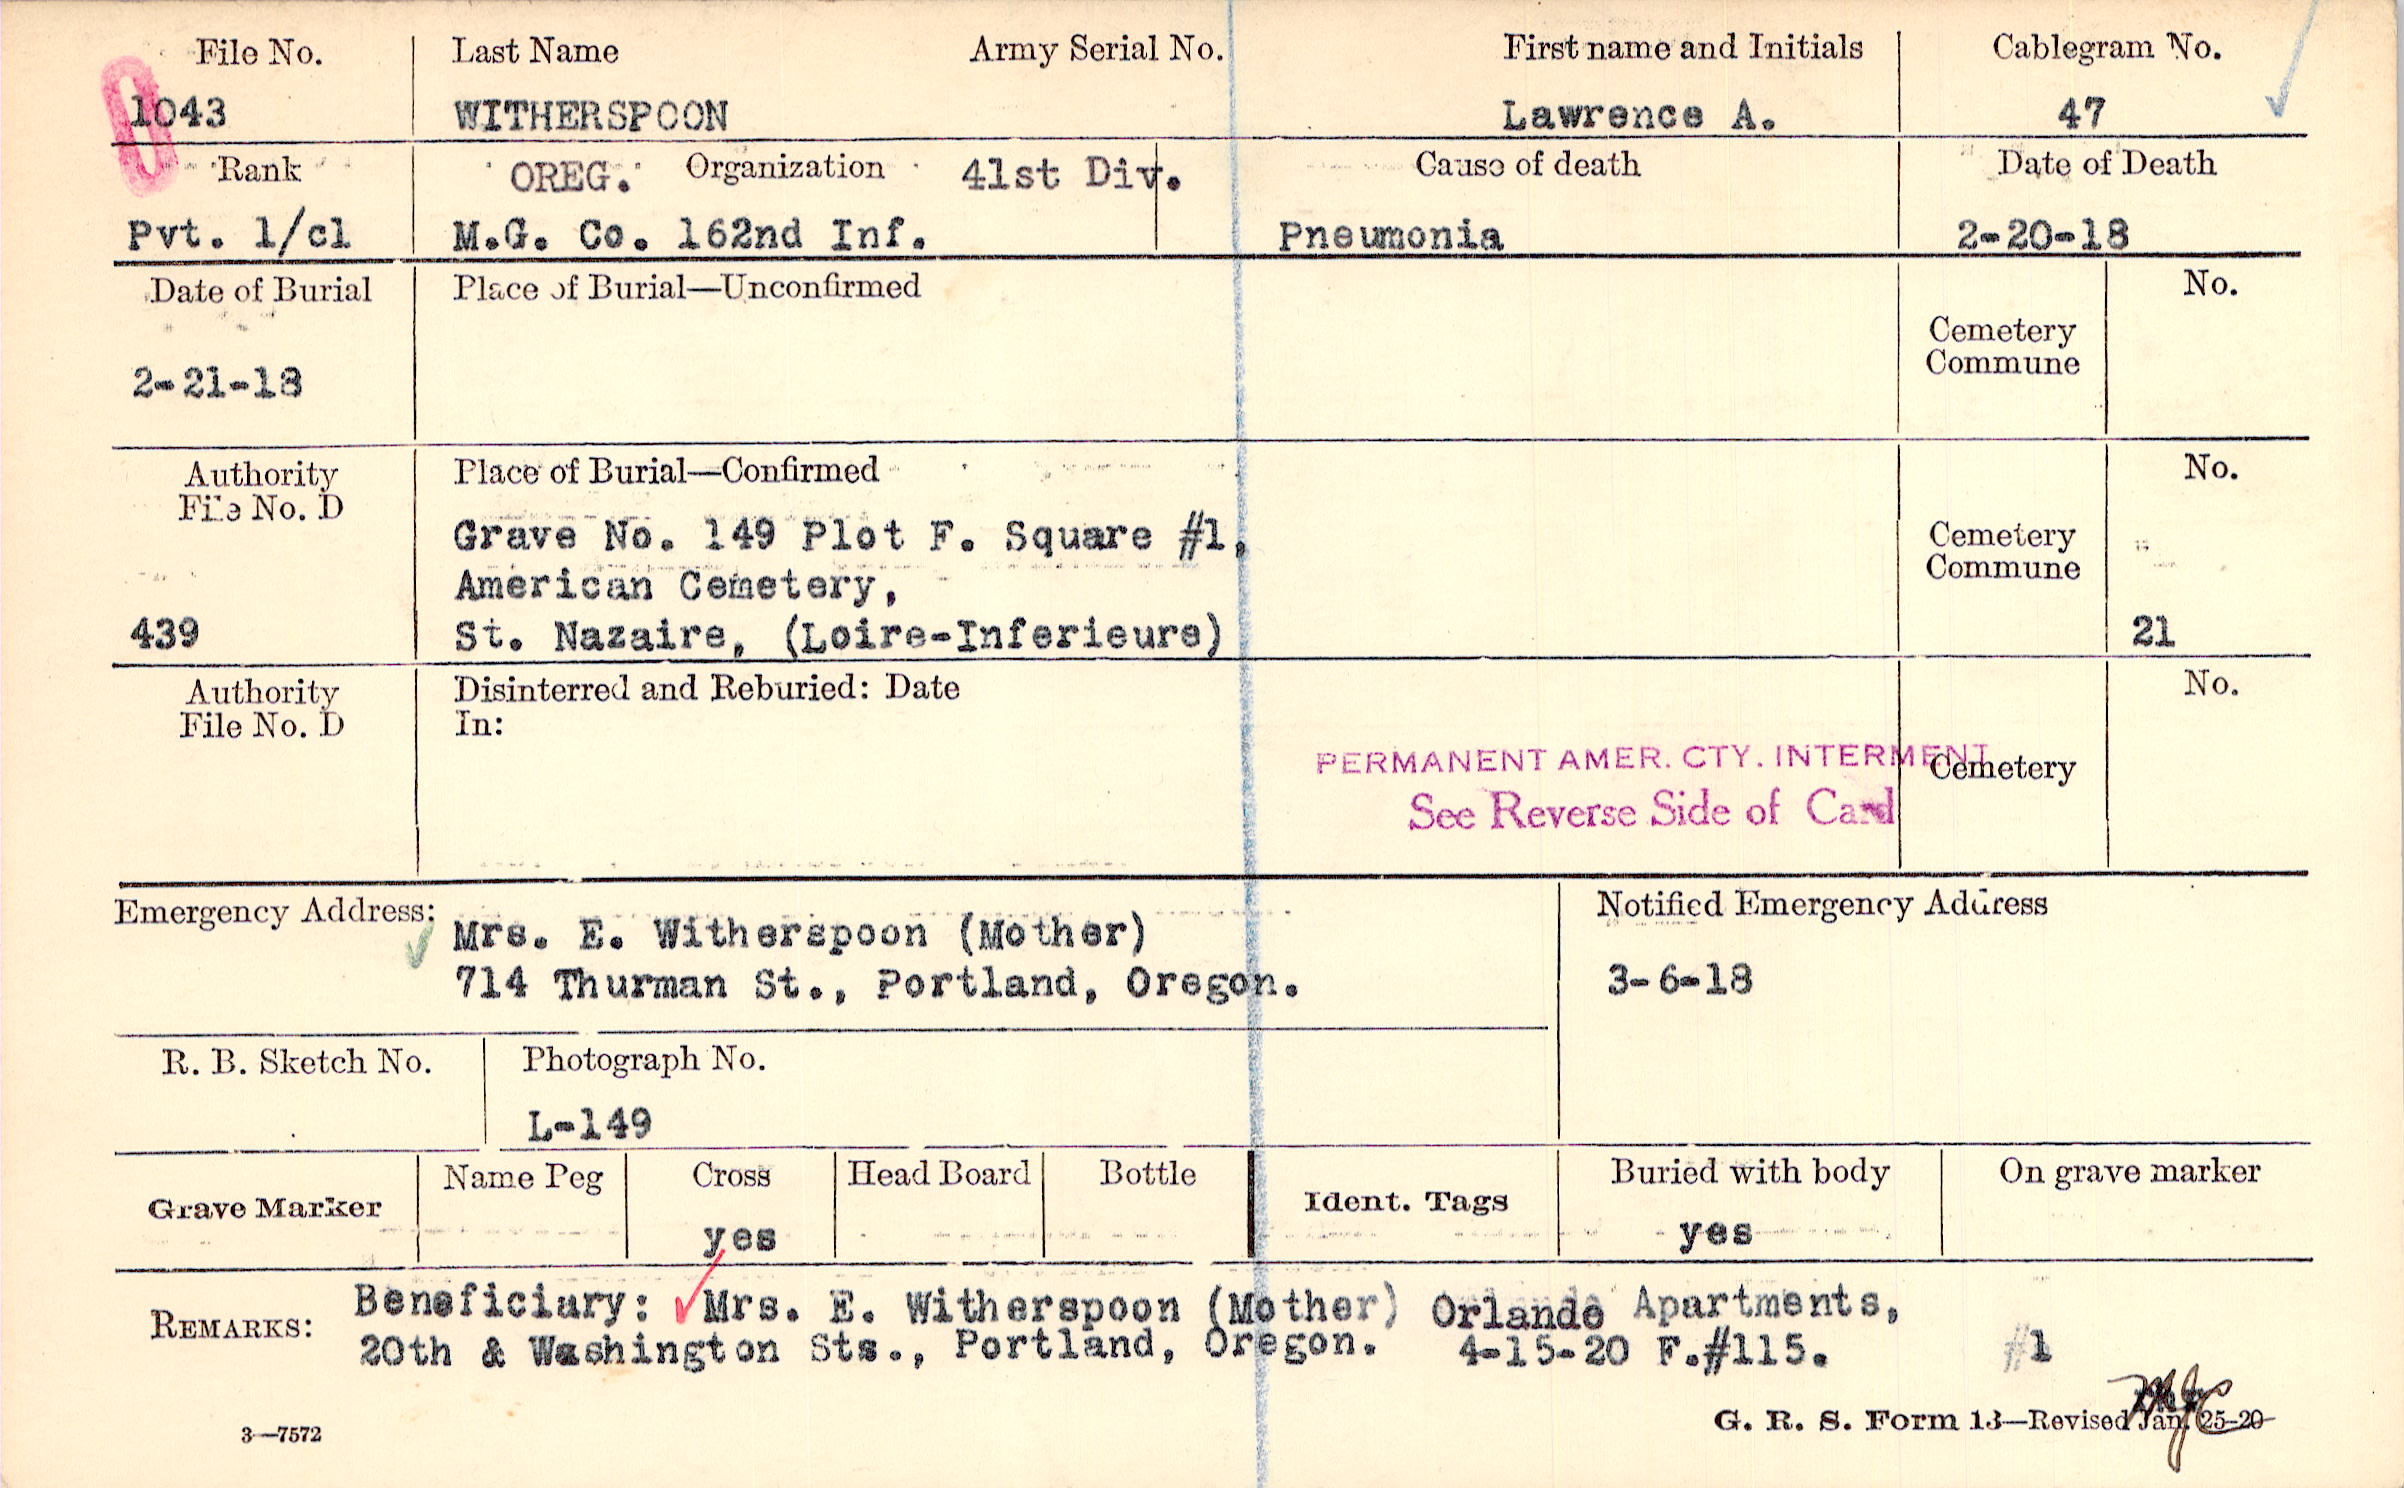 File No. Last Name Army Serial No. First name and Initials Cablegram No.
1043 WITHERSPOON Lawrence A. 47
Rank OREG. Organization 41st Div. Cause of death Date of Death
Pvt. 1/cl M.G. Co. 162nd Inf. Pneumonia 2-20-18
Date of Burial Place of Burial—Unconfirmed No.
Cemetery
Commune
2-21-18
Authority Place of Burial—Confirmed No.
File No. D
Grave No. 149 Plot F. Square #1, Cemetery
American Cemetery, Commune
439 St. Nazaire, (Loire-Inferieure) 21
Authority Disinterred and Reburied: Date No.
File No. D In:
PERMANENT AMER. CTY. INTERMENT Cemetery
See Reverse Side of Card
Emergency Address: Notified Emergency Address
Mrs. E. Witherspoon (Mother)
714 Thurman St., Portland, Oregon. 3-6-18
R. B. Sketch No. Photograph No.
L-149
Grave Marker Name Peg Cross Head Board Bottle Ident. Tags Buried with body On grave marker
yes yes
REMARKS: Beneficiary: Mrs. E. Witherspoon (Mother) Orlando Apartments,
20th & Washington Sts., Portland, Oregon. 4-15-20 F.#115. #1
3—7572 G. R. S. Form 13—Revised Jan. 25-20